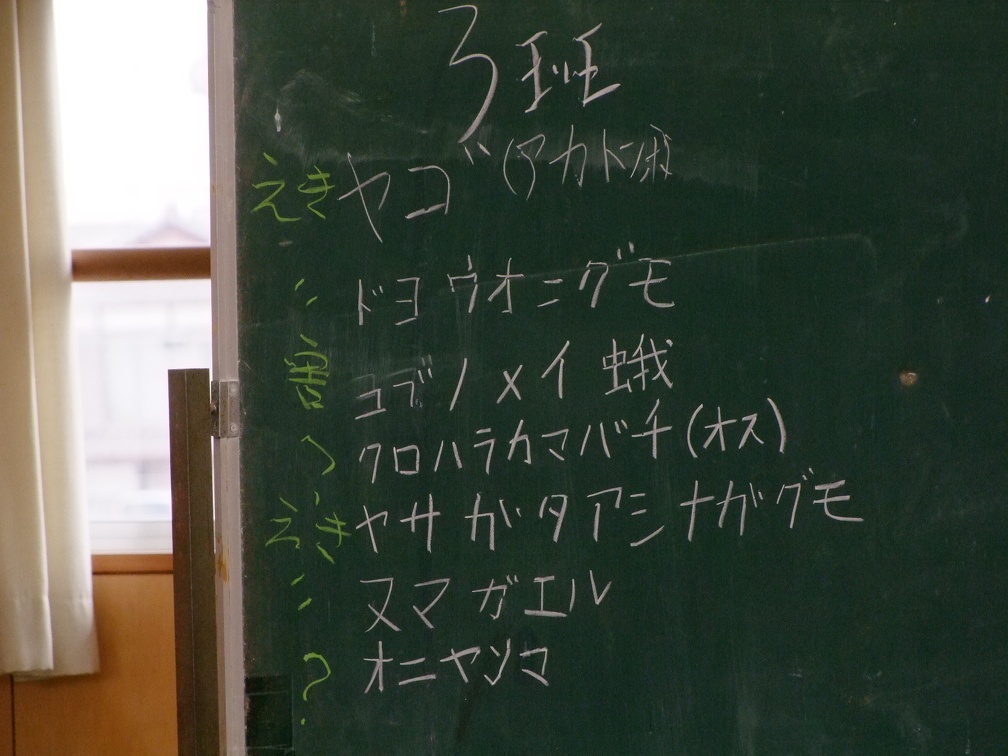 3班
えき ヤゴ (アカトンボ)
〃 ドヨウオニグモ
害 コブノメイ蛾
? クロハラカマバチ(オス)
えき ヤサガタアシナガグモ
〃 ヌマガエル
? オニヤンマ